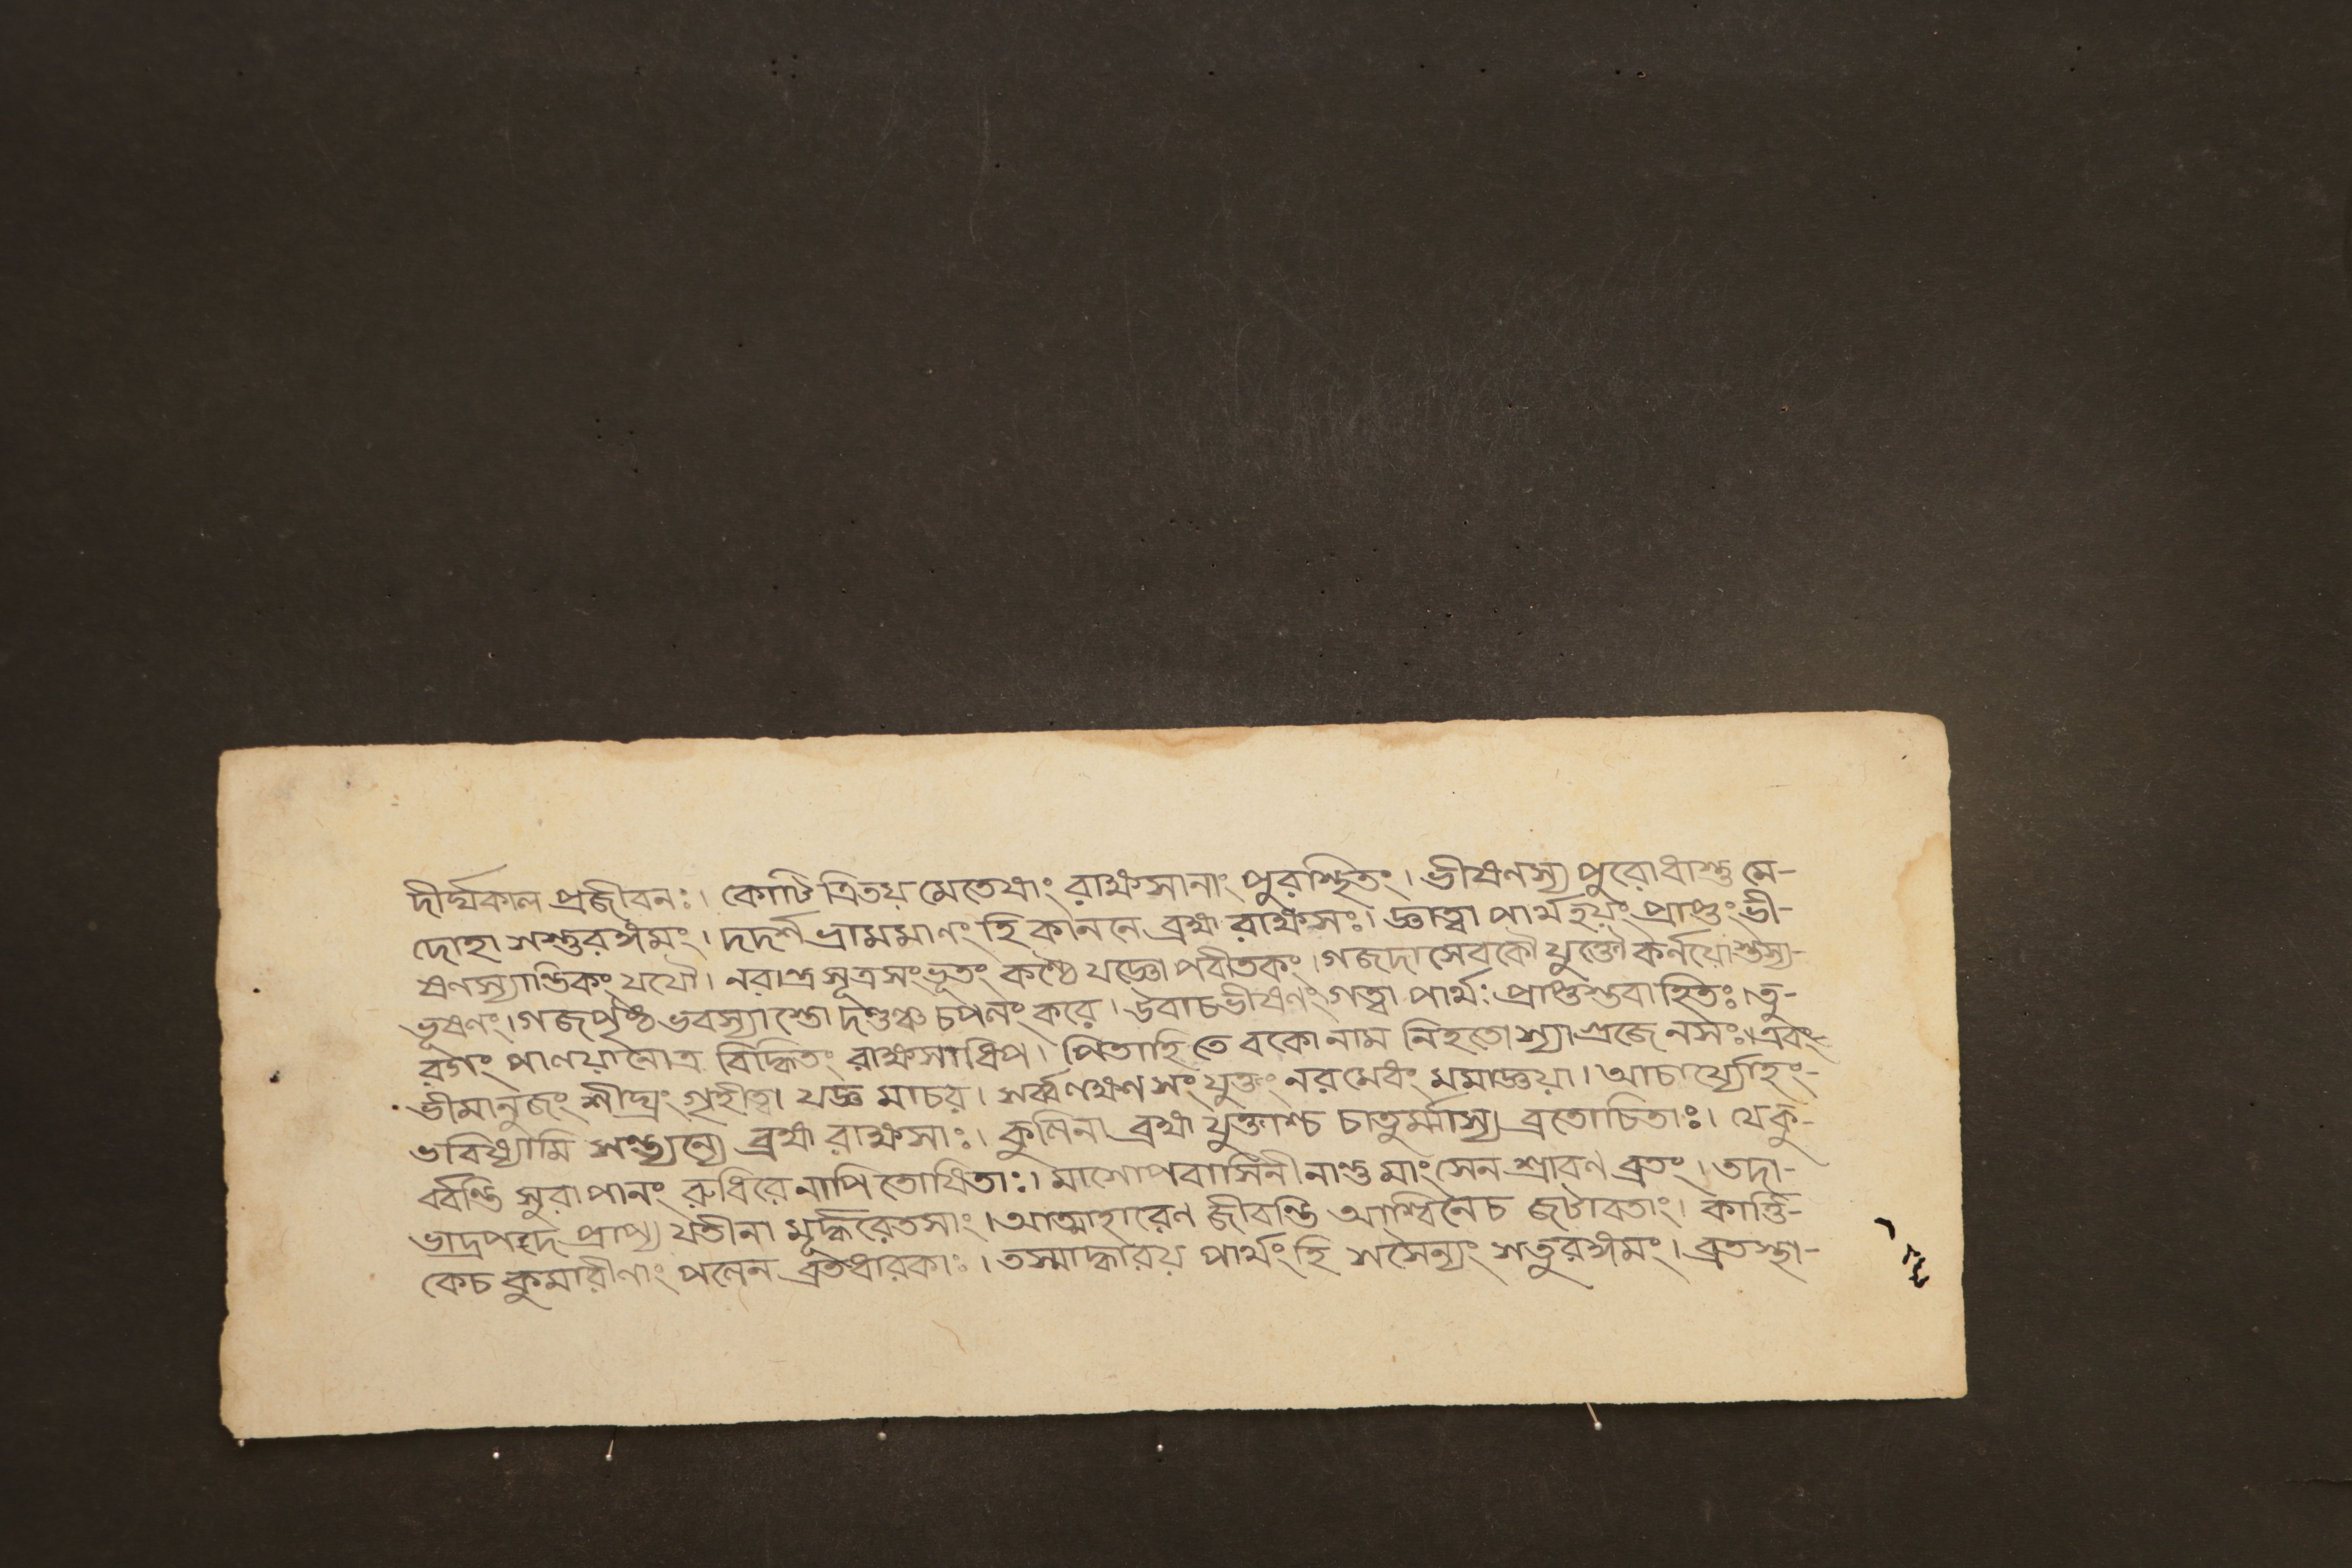 দীর্ঘকাল প্রজীবনঃ। কোটি ত্রিতয় মেতেষাং রাক্ষসানাং পুরস্থিতং। ভীষণস্য পুরোধাস্তু মে-
দোহা সস্তুরঙ্গমং। দদর্শ ভ্রামমাণং হি কাননে ব্রহ্ম রাক্ষসঃ। জ্ঞাত্বা পার্থ হয়ং প্রাপ্তং ভী-
ষণস্যান্তিকং যযৌ। নরান্ত্র সূত্র সংভূতং কণ্ঠে যজ্ঞো পবীতকং। গজদা সেবকৌ যুক্তৌ কর্নয়ো স্তস্য-
ভূষণং। গজপৃষ্ঠ ভবস্যাস্তো দণ্ডঞ্চ চপনং করে। উবাচ ভীষণং গত্বা পার্থঃ প্রাপ্তস্তবাহিতঃ। তু-
রগং পাণয়ানৈাত্র বিদ্ধিতং রাক্ষসাধিপ। পিতাহি তে বকো নাম নিহতোস্যাগ্রজে নসঃ। এবং-
ভীমানুজং শীঘ্রং গৃহীত্বা যজ্ঞ মাচর। সর্ব্বলক্ষণ সংযুক্তং নরমেধং মমাজ্ঞয়া। আচার্য্যোহং-
ভবিষ্যামি সন্ত্যন্যে ব্রহ্ম রাক্ষসাঃ। কুলিনা ব্রহ্ম যুক্তাশ্চ চাতুর্ম্মাস্য ব্রতোচিতাঃ। যেকু-
র্ব্বন্তি সুরাপানং রুধিরেনাপি তোষিতাঃ। মাসোপবাসিনী নান্তু মাংসেন শ্রাবণ ব্রতং। তদা-
ভাদ্রপদে প্রাপ্য যতীনা মূর্দ্ধরেতসাং। আত্মাহারেণ জীবন্তি আশ্বিনেচ জটাবতাং। কার্ত্তি-
কেচ কুমারীণাং পলেন ব্রতধারকাঃ। তস্মাদ্ধারয় পার্থং হি সসৈন্যং সতুরঙ্গমং। ব্রতস্থা-